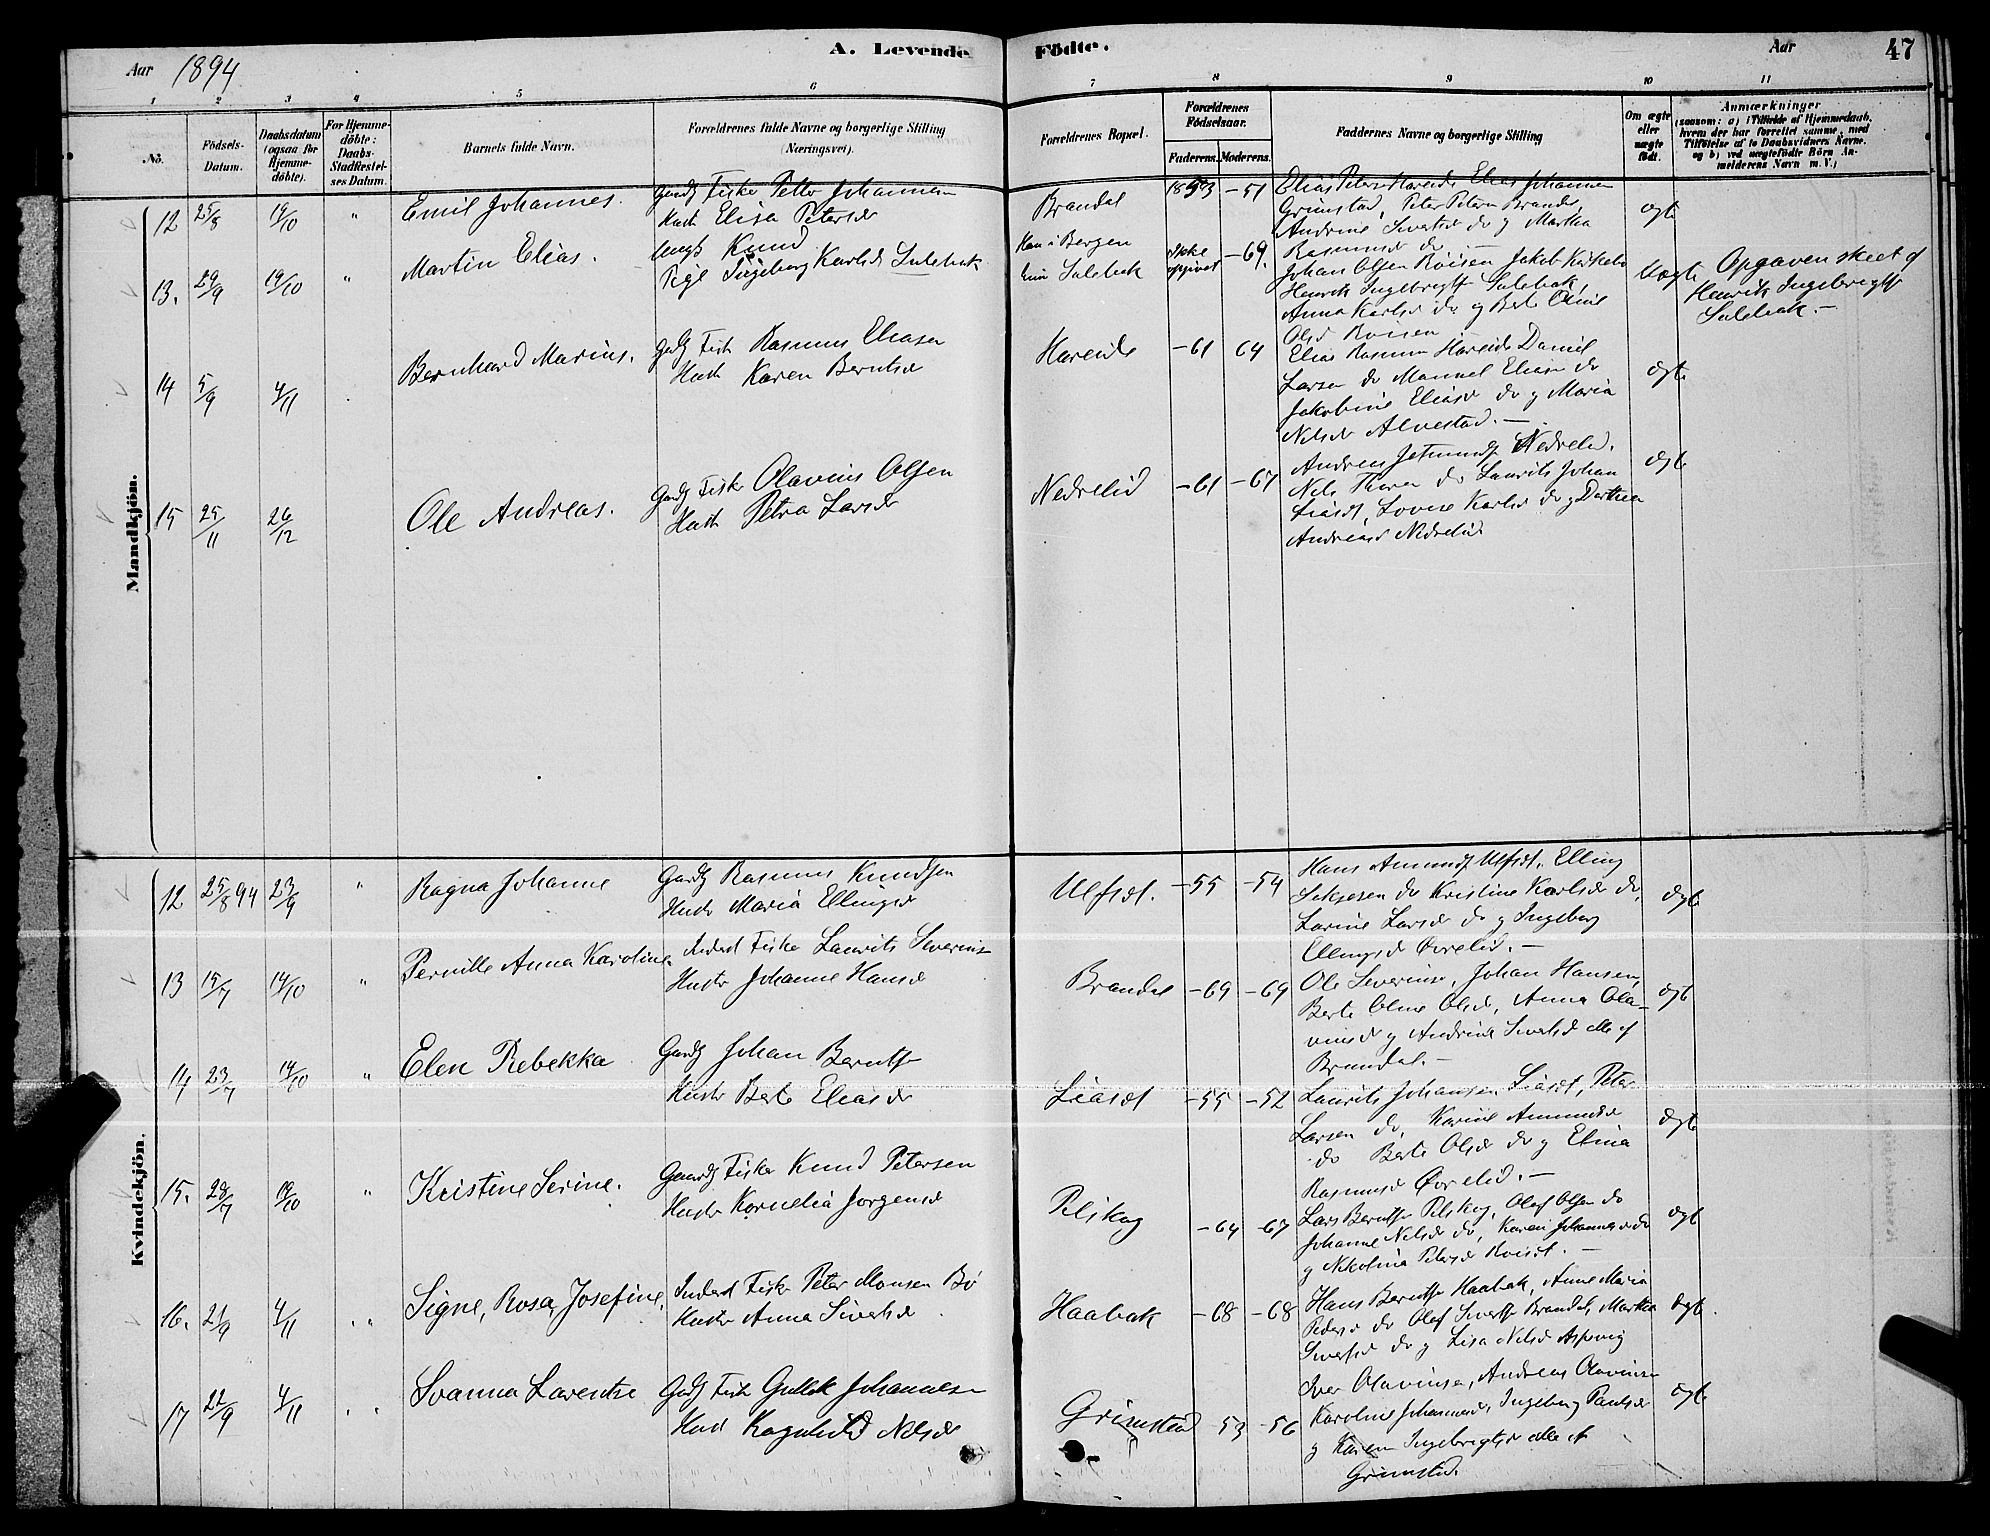 A. Levende Födte.
Aar 1894
Aar 47
1 2 3 4 5 6 7 8 9 10 11
No.
Födsels-Datum.
Daabsdatum (ogsaa for Hjemme-döbte).
For Hjemme-döbte: Daabs-Stadfæstel-ses Datum.
Barnets fulde Navn.
Forældrenes fulde Navne og borgerlige Stilling (Næringsvei).
Forældrenes Bopæl.
Forældrenes Födselsaar.
Faderens. Moderens.
Faddernes Navne og borgerlige Stilling
Om ægte eller uægte födt.
Anmærkninger
(saasom: a) i Tilfælde af Hjemmedaab,
hvem der har forrettet samme, med
Tilföielse af to Daabsvidners Navne,
og b) ved uægtefödte Börn An-
melderens Navn m. V.)
Mandkjön.
12 25/8 14/10 " Emil Johannes.
Gardb Fisker Petter Johannesen
Hustr Elisa Petersdr
Brandal 1853 -51
Elias Peters Hareide Elias Johannesen
Grimstad, Peter Petersen Brandal,
Andrine Sivertsdr do og Martha
Rasmusdr do
ægte
13. 29/9 14/10 " Martin Elias.
Ungk Knud
Pige Ingeborg Karlsdr Sulebak
Han i Bergen
hun Sulebak
Ikke opgivet -69.
Johan Olsen Röisen Jakob
Henrik Ingebrigts Sulebak,
Anna Karlsdr do og Berte Oline
Olsd Röisen
Uægte
Opgaven skeet af
Henrik Ingebrigts
Sulebak.-
14 5/9 4/11 Bernhard Marius.
Gardb Fisk Rasmus Eliasen
Hustr Karen Berntsdr
Hareide -61 64
Elias Rasmusen Hareide Daniel
Larsen do Manuel Eliasen do
Jakobine Eliasdr do og Maria
Nilsdr Alvestad.-
ægte
15 25/11 26/12 Ole Andreas.
Gardb Fisker Olavius Olsen
Hustr Petra Larsdr
Nedrelid -61 -67
Andreas Jetmunds Nedrelid.
Nils Thoren do Laurits Johan
Liasæt, Lovise Karlsdr do og Dorthea
Andreasd Nedrelid
ægte
Kvindekjön.
12 25/8 94 23/9 " Ragna Johanne
Gardb Rasmus Knudsen
Hustr Maria Ellingsdr
Ulfsæt. -55 -54
Hans Amunds Ulfsæt. Elling
do Kristine Karlsdr do,
Larine Larsdr do og Ingeborg
Ellingsd Övrelid.-
ægte
13 15/7 14/10 " Pernille Anna Karoline.
Inderst Fisker Laurits Severins
Hustr Johanne Hansdr
Brandal -69 -69
Ole Severins, Johan Hansen,
Berte Oline Olsdr, Anna Ola-
vinsd og Andrine Sivertsd alle af
Brandal.-
ægte
14 23/7 14/10 " Elen Rebekka
Gardb Johan Bernts
Hustr Berte Eliasdr
Liasæt -55 -52
Laurits Johansen Liasæt, Peter
Larsen do, Karine Amundsdr
do Berte Olsdr do og Elina
Rasmusd Övrelid.-
ægte
15. 28/7 14/10 " Kristine Serine.
Gaardb Fisker Knud Petersen
Hustr Kornelia Jörgensd
Pilskog -64 -67
Lars Bernts Pilskog, Olaf Olsen do
Johanne Nilsdr do, Karen Johannesdr do
og Nikolina Petersd Röiset.-
ægte
16. 21/9 4/11 " Signe, Rosa, Josefine,
Inderst Fisker Peter Monsen Bö
Hustr Anna Sivertsdr
Haabak -68 -68
Hans Bernts Haabak, Anne Maria
Pedersd do Olaf Sivertsen Brandal, Martha
Sivertsd do og Lisa Nilsd Aspevig
ægte.
17 22/9 4/11 " Svanna Larentse
Gardb Fisk Gullak Johannesen
Hust Ragnhild Nilsdr
Grimstad 53 -56
Iver Olavinsen, Andreas Olavinsen
Karoline Johannesd, Ingeborg Paulsdr
og Karen Ingebrigtsd alle af
Grimstad.
ægte